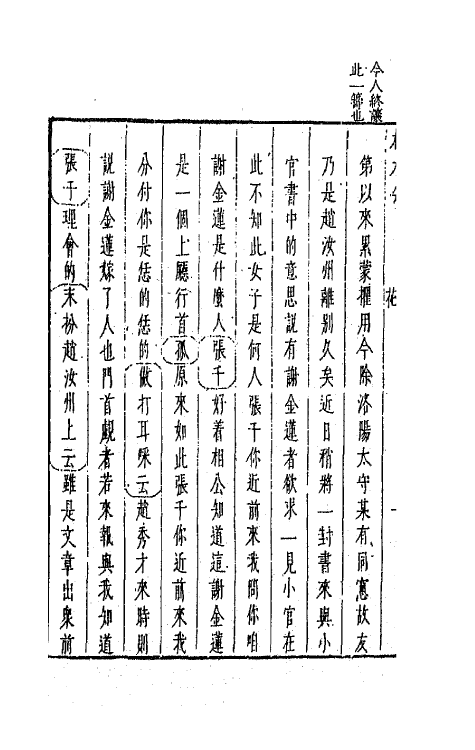 今人終讓
此一籌也
第以來累蒙擢用今除洛陽太守某有同窻故友
乃是趙汝州離別久矣近日稍將一封書來與小
官書中的意思說有謝金蓮者欲求一見小官在
此不知此女子是何人張千你近前來我問你咱
謝金蓮是什麼人張千好着相公知道這謝金蓮
是一個上廳行首孤原來如此張千你近前來我
分付你是恁的恁的做打耳喑云趙秀才來時則
說謝金蓮嫁了人也門首覷者若來報與我知道
張千理會的末扮趙汝州上云雖是文章出衆前